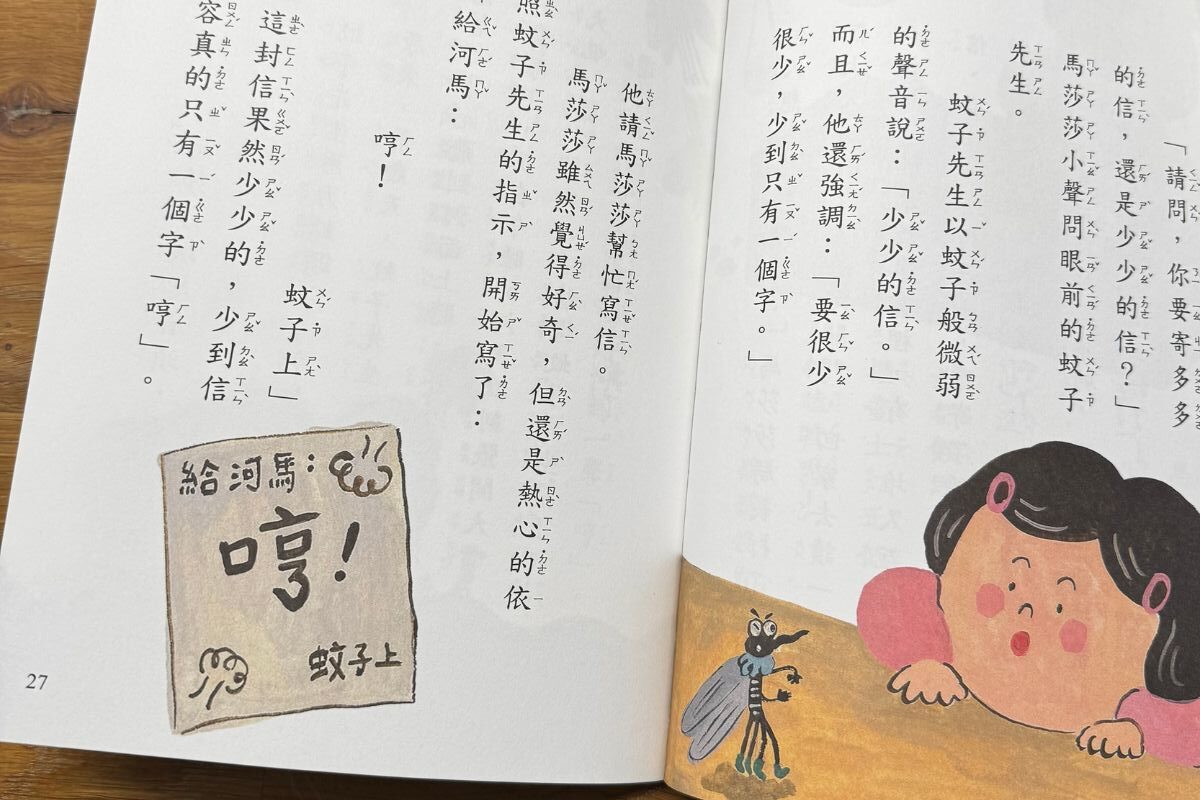 「請問，你要寄多多
的信，還是少少的信？」
馬莎莎小聲問眼前的蚊子
先生。
蚊子先生以蚊子般微弱
的聲音說：「少少的信。」
而且，他還強調：「要很少
很少，少到只有一個字。」
他請馬莎莎幫忙寫信。
馬莎莎雖然覺得好奇，但還是熱心的依
照蚊子先生的指示，開始寫了：
給河馬：
哼！
蚊子上」
這封信果然少少的，少到信
容真的只有一個字「哼」。
給河馬：
哼！
蚊子上
27